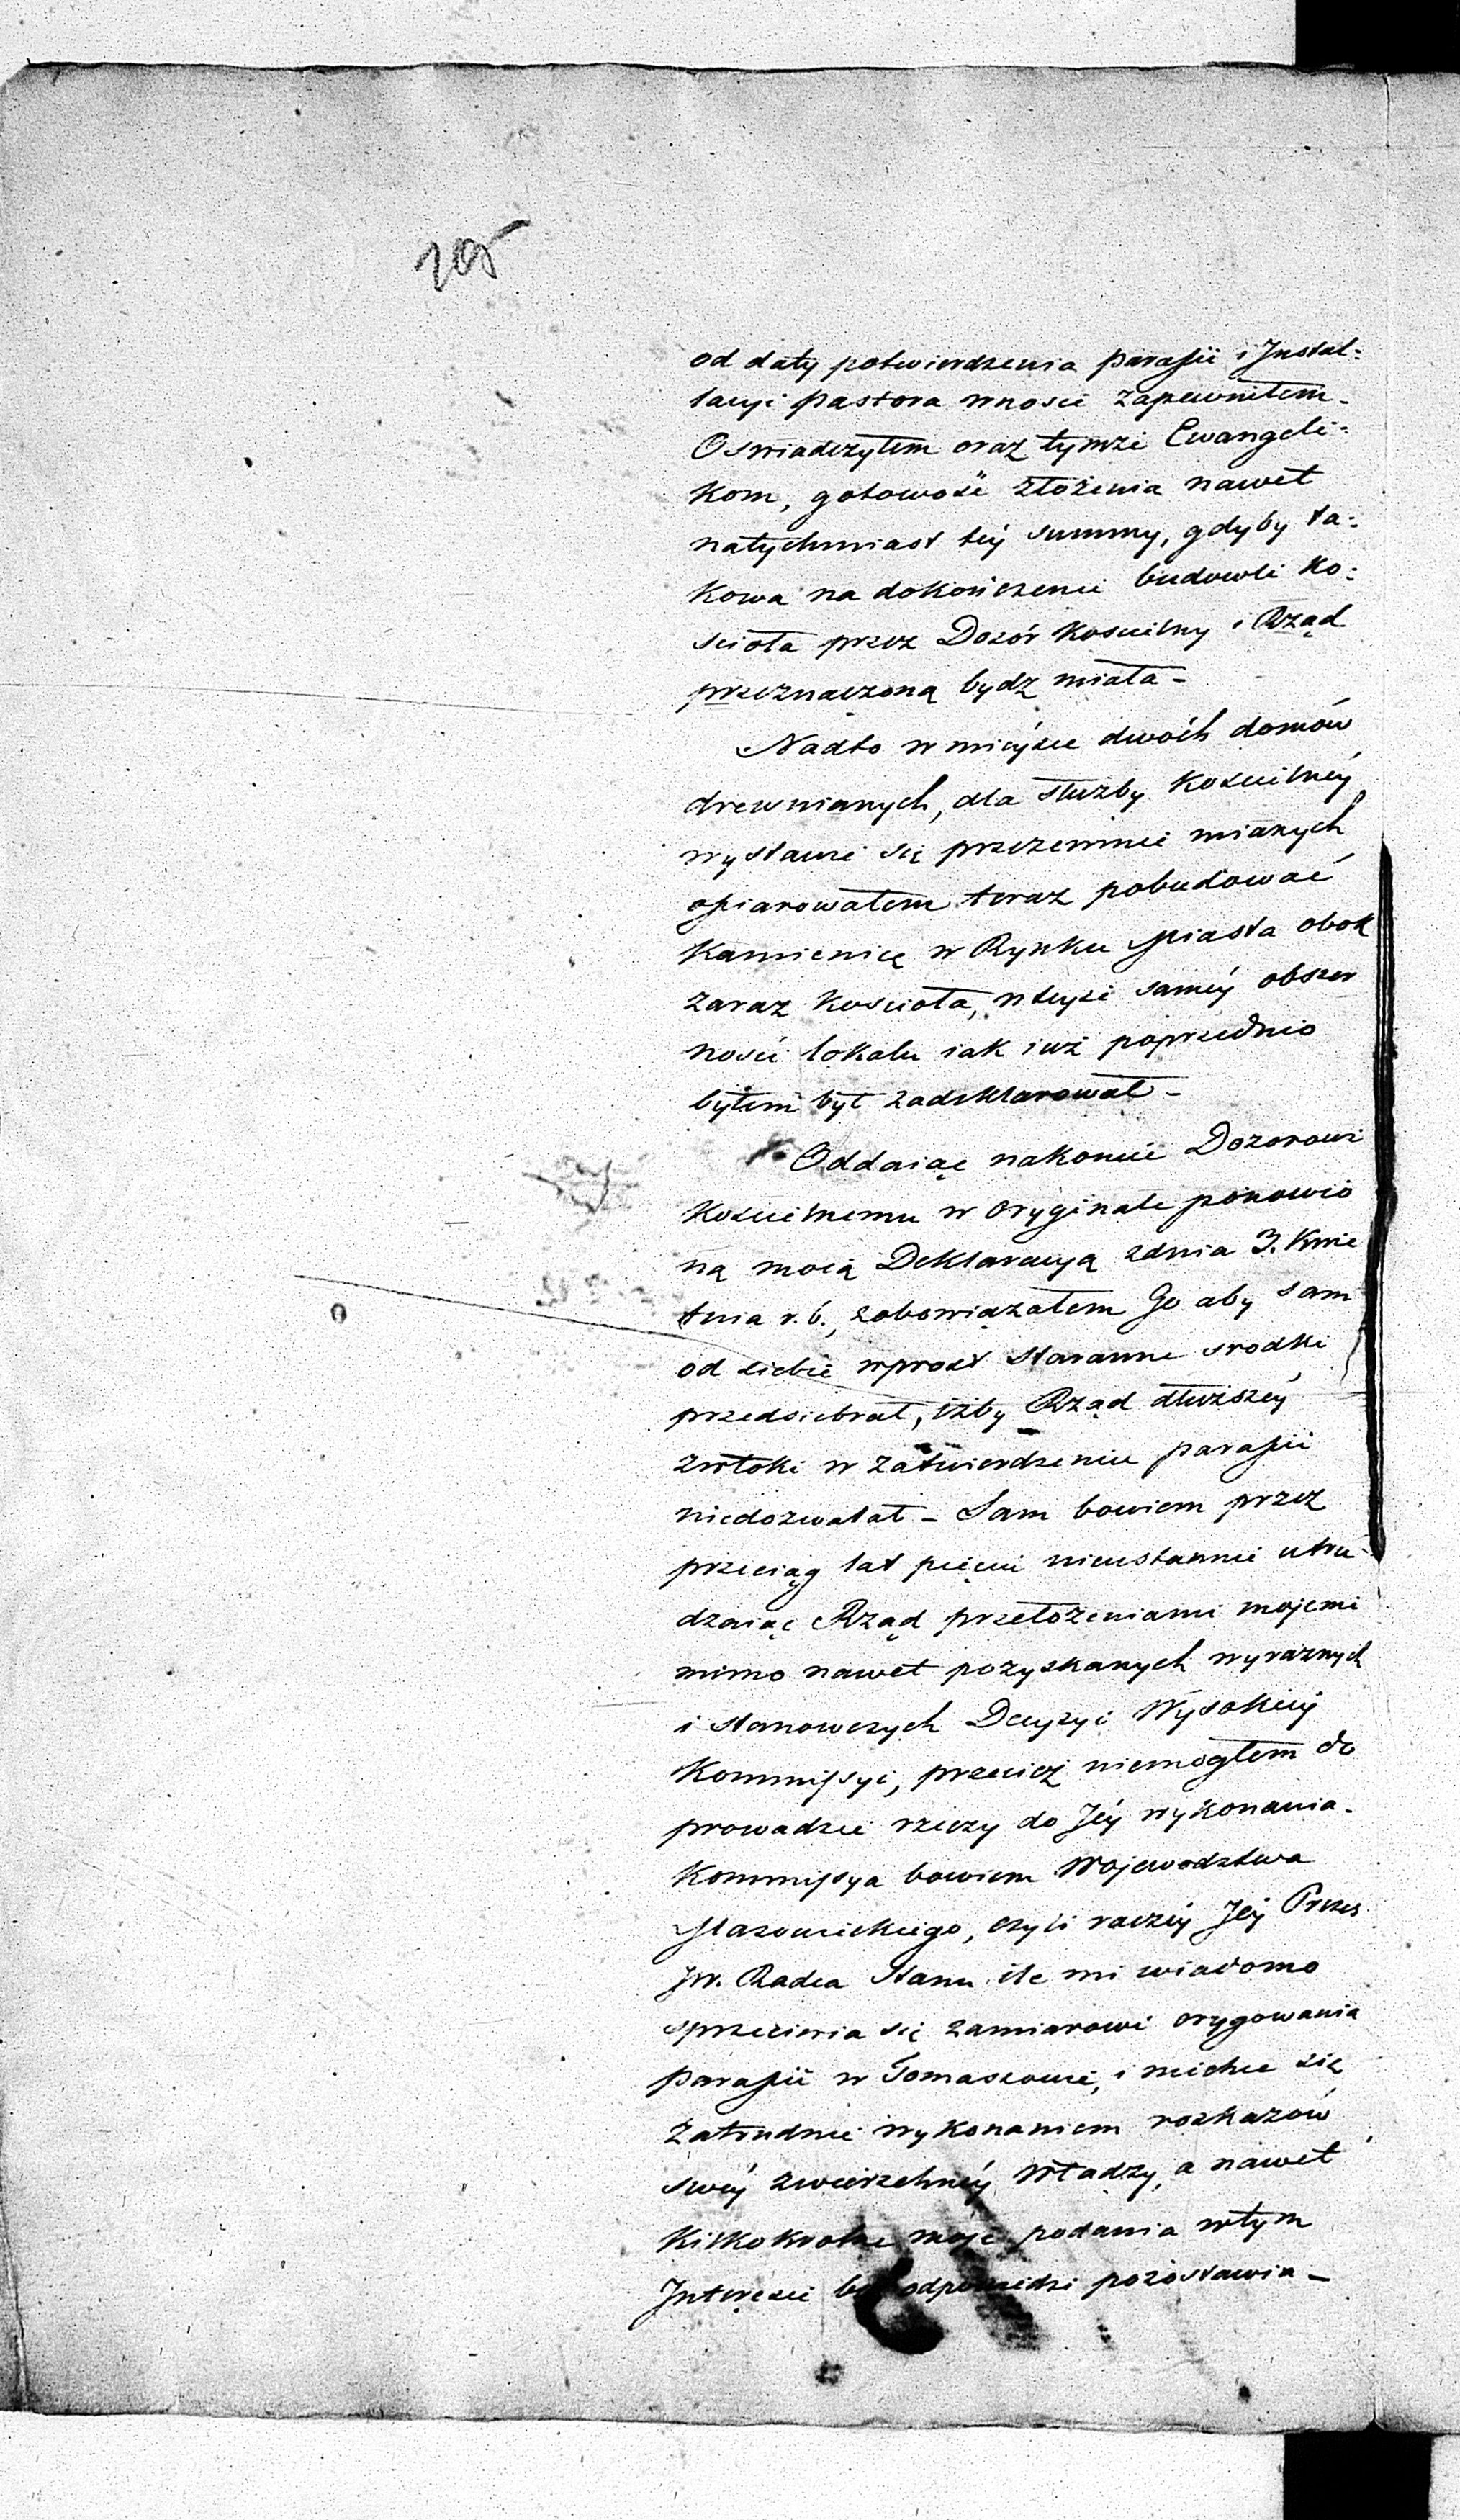 205
od daty potwierdzenia parafii i Jnstal=
lacyi pastora wnosić zapewniłem.
Oswiadczyłem oraz tymże Ewangeli=
kom, gotowość złożenia nawet
natychmiast téy summy, gdyby ta=
kowa na dokończenie budowli Ko=
scioła przez Dozór Koscielny i Rząd
przeznaczoną bydź miała –
Nadto w mieysce dwóch domów
drewnianych, dla służby Kościelnéy
wystawić się przezemnie mianych
ofiarowałem teraz pobudować
Kamienicę w Rynku Miasta obok
zaraz Kościoła, w teyże saméy obszer
ności lokalu iak iuż poprzednio
byłem był zadeklarował –
Oddaiąc nakoniec Dozorowi
Kościelnemu w oryginale ponowio
ną moią Deklaracyą z dnia 3. Kwie
tnia r. b., zobowiązałem Go aby sam
od siebie wprost staranne srodki
przedsiebrał, iżby Rząd dłuższéy
zwłoki w zatwierdzeniu parafii
niedozwalał – Sam bowiem przez
przeciąg lat pięciu nieustannie utru
dzaiąc Rząd przełożeniami mojemi
mimo nawet pozyskanych wyraznych
i stanowczych Decyzyi Wysokiey
Kommissyi, przecież niemogłem do
prowadzić rzeczy do Jéy wykonania.
Kommissya bowiem Wojewodztwa
Mazowieckiego, czyli raczéy Jéy Prezes
JW. Radca Stanu ile mi wiadomo
sprzeciwia się zamiarowi erygowania
parafii w Tomaszowie, i niechce się
zatrudnić wykonaniem rozkazów
swéy zwierzchnéy Władzy, a nawet
Kilkokrotne moje podania w tym
Jnteresie bez odpowiedzi pozostawia –